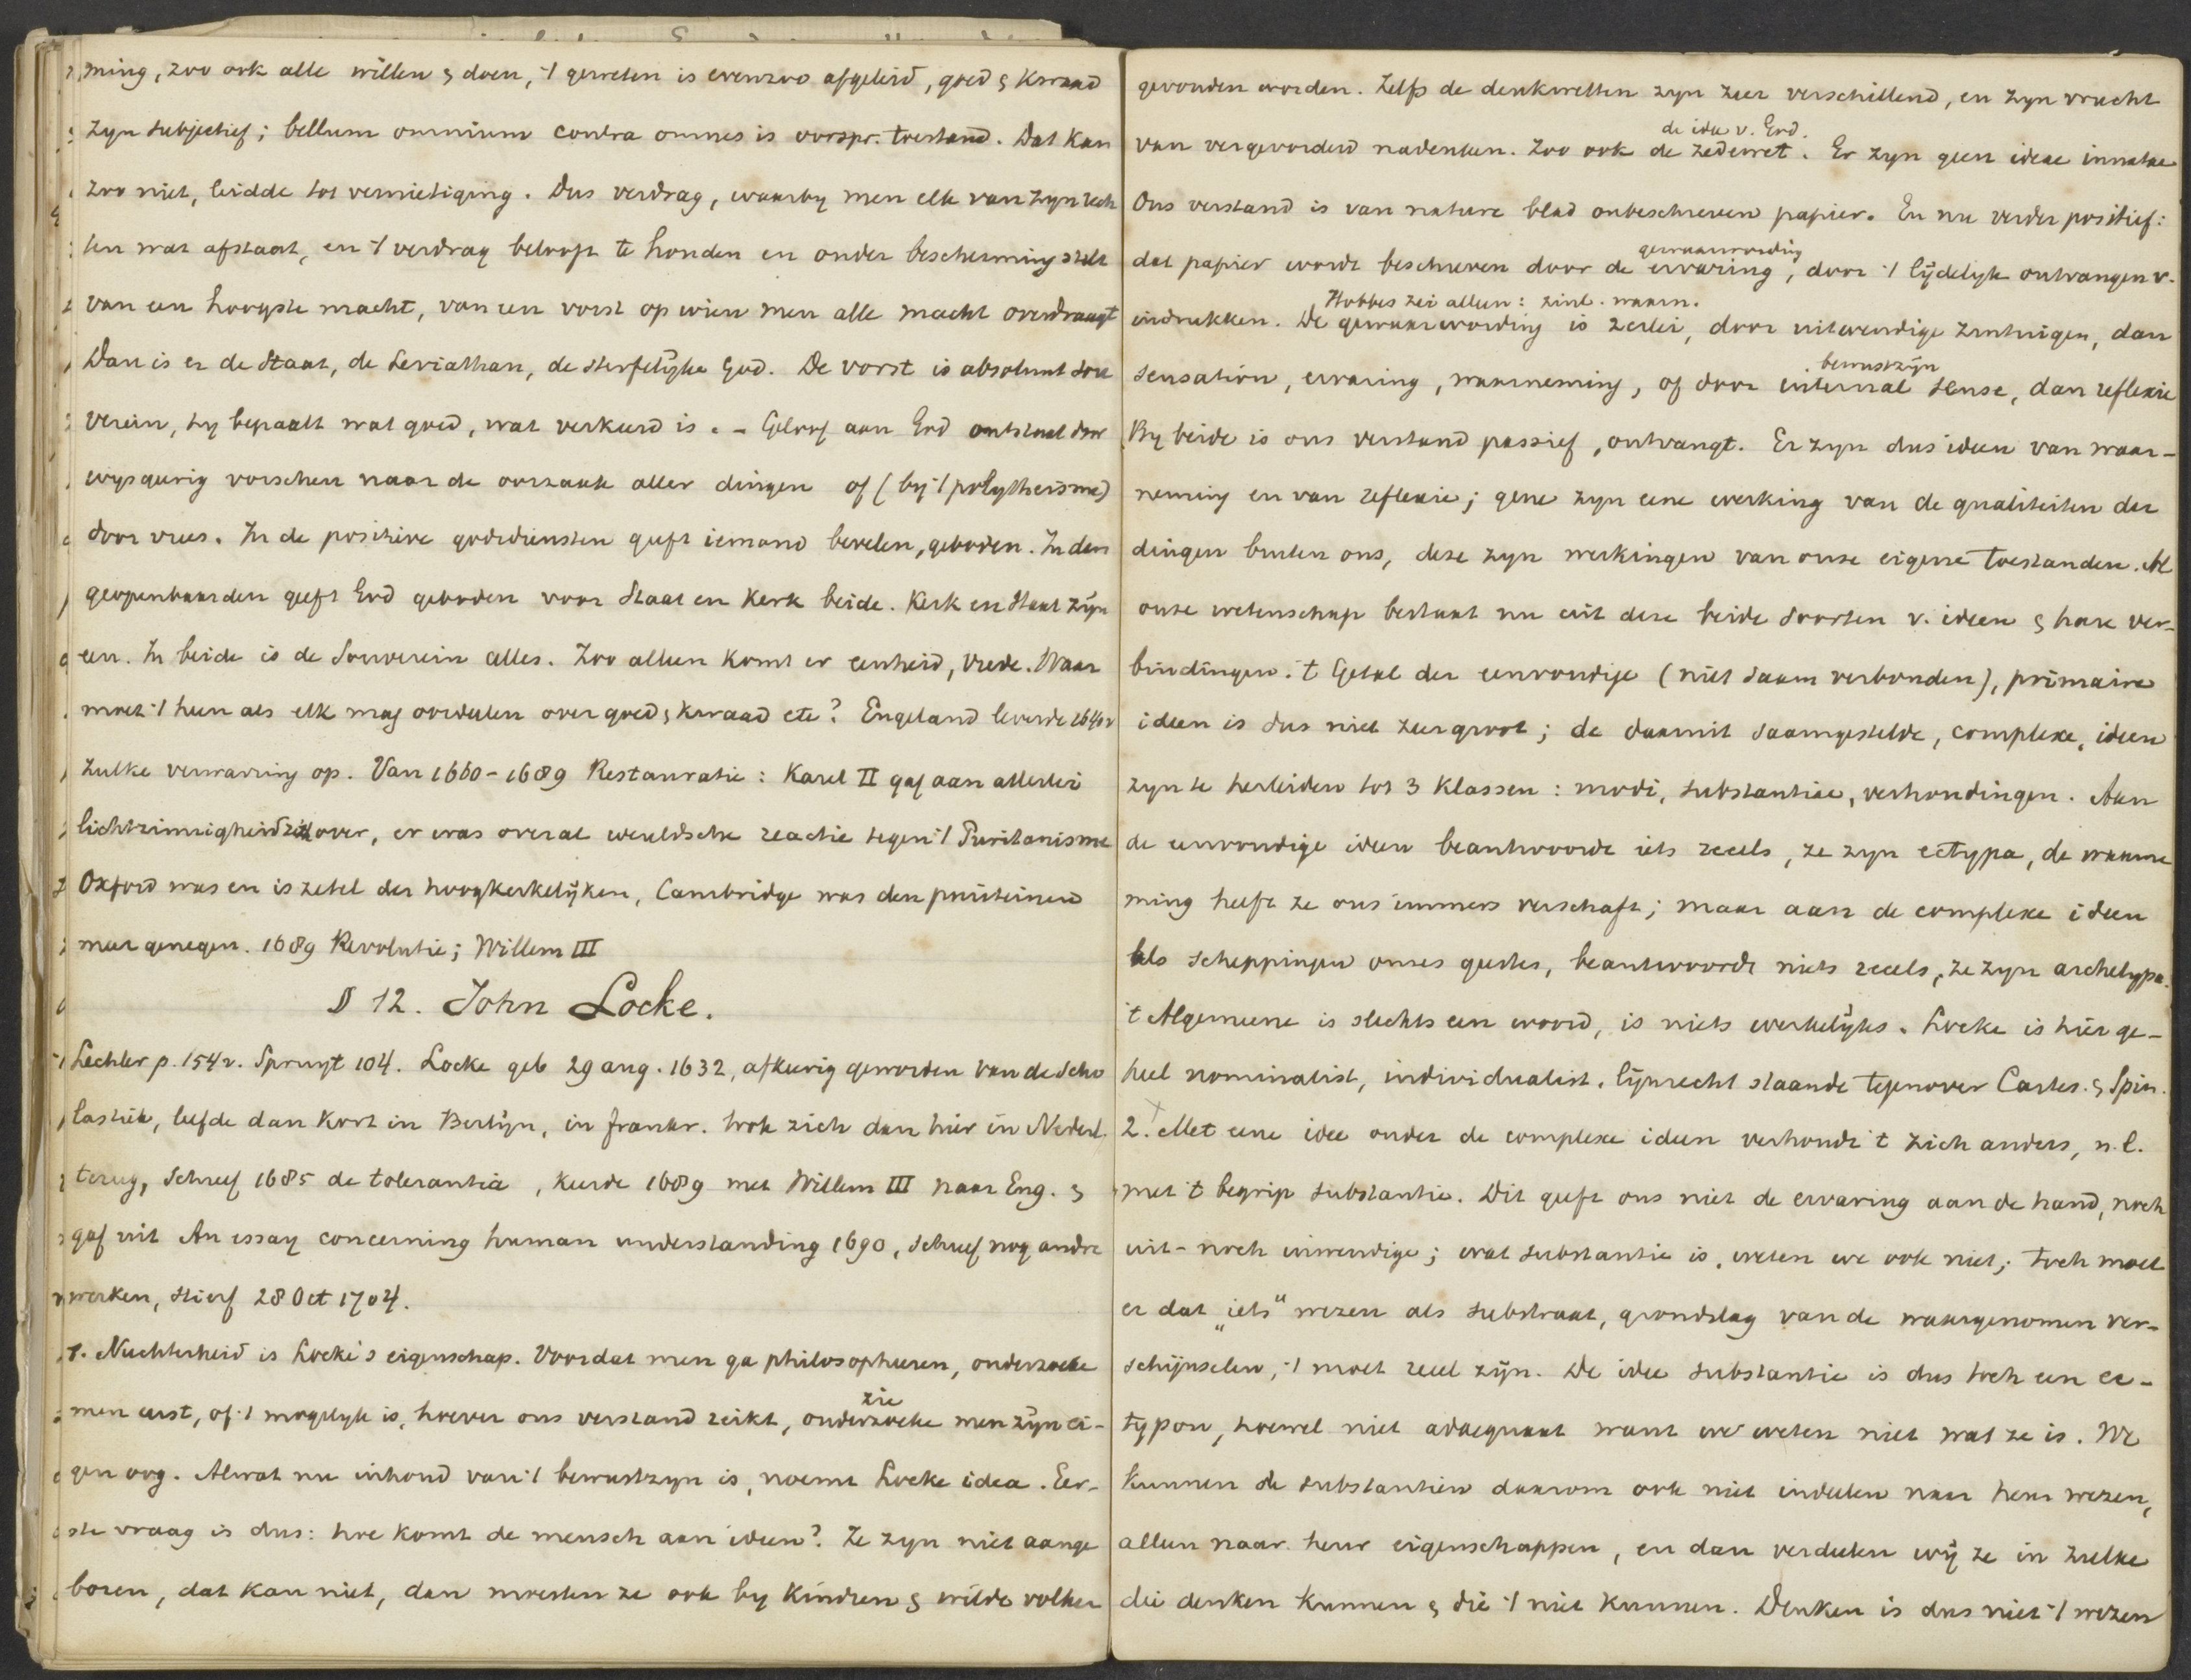 ming, zoo ook alle willen & doen, 't geweten is evenzoo afgeleid, goed & kwaad
zyn subjectief; bellum omnium contra omnes is oorspr. toestand. Dat kan
zoo niet, leidde tot vernietiging. Dus verdrag, waarby men elk van zyn rech
ten wat afstaat, en 't verdrag belooft te houden en onder bescherming stelt
van een hoogste macht, van een vorst op wien men alle macht overdraagt
Dan is er de Staat, de Leviathan, de sterfelyke God. De vorst is absoluut sou
verein, hy bepaalt wat goed, wat verkeerd is. - Geloof aan God ontstaat door
wysgeerig vorschen naar de oorzaak aller dingen of (by 't polytheisme)
door vrees. In de positieve godsdiensten geeft iemand bevelen, geboden. In den
geopenbaarden geeft God geboden voor Staat en Kerk beide. Kerk en Staat zyn
een. In beide is de Souverein alles. Zoo alleen komt er eenheid, vrede. Waar
moet 't heen als elk mag oordeelen over goed & kwaad etc? Engeland leverde 1640 v
zulke verwarring op. Van 1660-1689 Restauratie: Karel II gaf aan allerlei
lichtzinnigheid zich over, er was overal wereldsche reactie tegen 't Puritanisme
Oxford was en is zetel der hoogkerkelyken, Cambridge was den puriteinen
meer genegen. 1689 Revolutie; Willem III
§ 12. John Locke.
Lechler p. 154 v. Spruyt 104. Locke geb 29 aug. 1632, afkeerig geworden van de Scho
lastiek, leefde dan kort in Berlyn, in Frankr. trok zich dan hier in Nederl.
terug, schreef 1685 de tolerantia, keerde 1689 met Willem III naar Eng. &
gaf uit An essay concerning human understanding 1690, schreef nog andre
werken, stierf 28 Oct 1704.
1. Nuchterheid is Locke's eigenschap. Voordat men ga philosopheeren, onderzoeke
men eerst, of 't mogelyk is, hoever ons verstand reikt, onderzoeke men zyn ei-
zie
gen oog. Alwat nu inhoud van 't bewustzyn is, noemt Locke idea. Eer-
ste vraag is dus: hoe komt de mensch aan ideen? Ze zyn niet aange
boren, dat kan niet, dan moesten ze ook by kindren & wilde volken
gevonden worden. Zelfs de denkwetten zyn zeer verschillend, en zyn vrucht
de idee v. God.
van vergevorderd nadenken. Zoo ook de zedewet. Er zyn geen ideae innatae
Ons verstand is van nature blad onbeschreven papier. En nu verder positief:
gewaarwording
dat papier wordt beschreven door de ervaring, door 't lydelyk ontvangen v.
Hobbes zei alleen: zinl. waarn.
indrukken. De gewaarwording is 2erlei, door uitwendige zintuigen, dan
bewustzyn
sensation, ervaring, waarneming, of door internal sense, dan reflexie
By beide is ons verstand passief, ontvangt. Er zyn dus ideen van waar-
neming en van reflexie; gene zyn eene werking van de qualiteiten der
dingen buiten ons, deze zyn werkingen van onze eigene toestanden. Al
onze wetenschap bestaat nu uit deze beide soorten v. ideen & hare ver-
bindingen. 't Getal der eenvoudige (niet saam verbonden), primaire
ideen is dus niet zeer groot; de daaruit saamgestelde, complexe, ideen
zyn te herleiden tot 3 klassen: modi, substantiae, verhoudingen. Aan
de eenvoudige ideen beantwoordt iets reeels, ze zyn ectypa, de waarne
ming heeft ze ons immers verschaft; maar aan de complexe ideen
als scheppingen onzes geestes, beantwoordt niets reeels, ze zyn archetypa.
't Algemeene is slechts een woord, is niets werkelyks. Locke is hier ge-
heel nominalist, individualist, lynrecht staande tegenover Cartes. & Spin.
2. Met eene idee onder de complexe ideen verhoudt 't zich anders, n.l.
met 't begrip substantie. Dit geeft ons niet de ervaring aan de hand, noch
uit- noch inwendige; wat substantie is, weten we ook niet; toch moet
er dat „iets" wezen als substraat, grondslag van de waargenomen ver-
schynselen, 't moet reeel zyn. De idee substantie is dus toch een ec-
typon, hoewel niet adaequaat want we weten niet wat ze is. We
kunnen de substantien daarom ook niet indeelen naar heur wezen,
alleen naar heur eigenschappen, en dan verdeelen wy ze in zulke
die denken kunnen & die 't niet kunnen. Denken is dus niet 't wezen